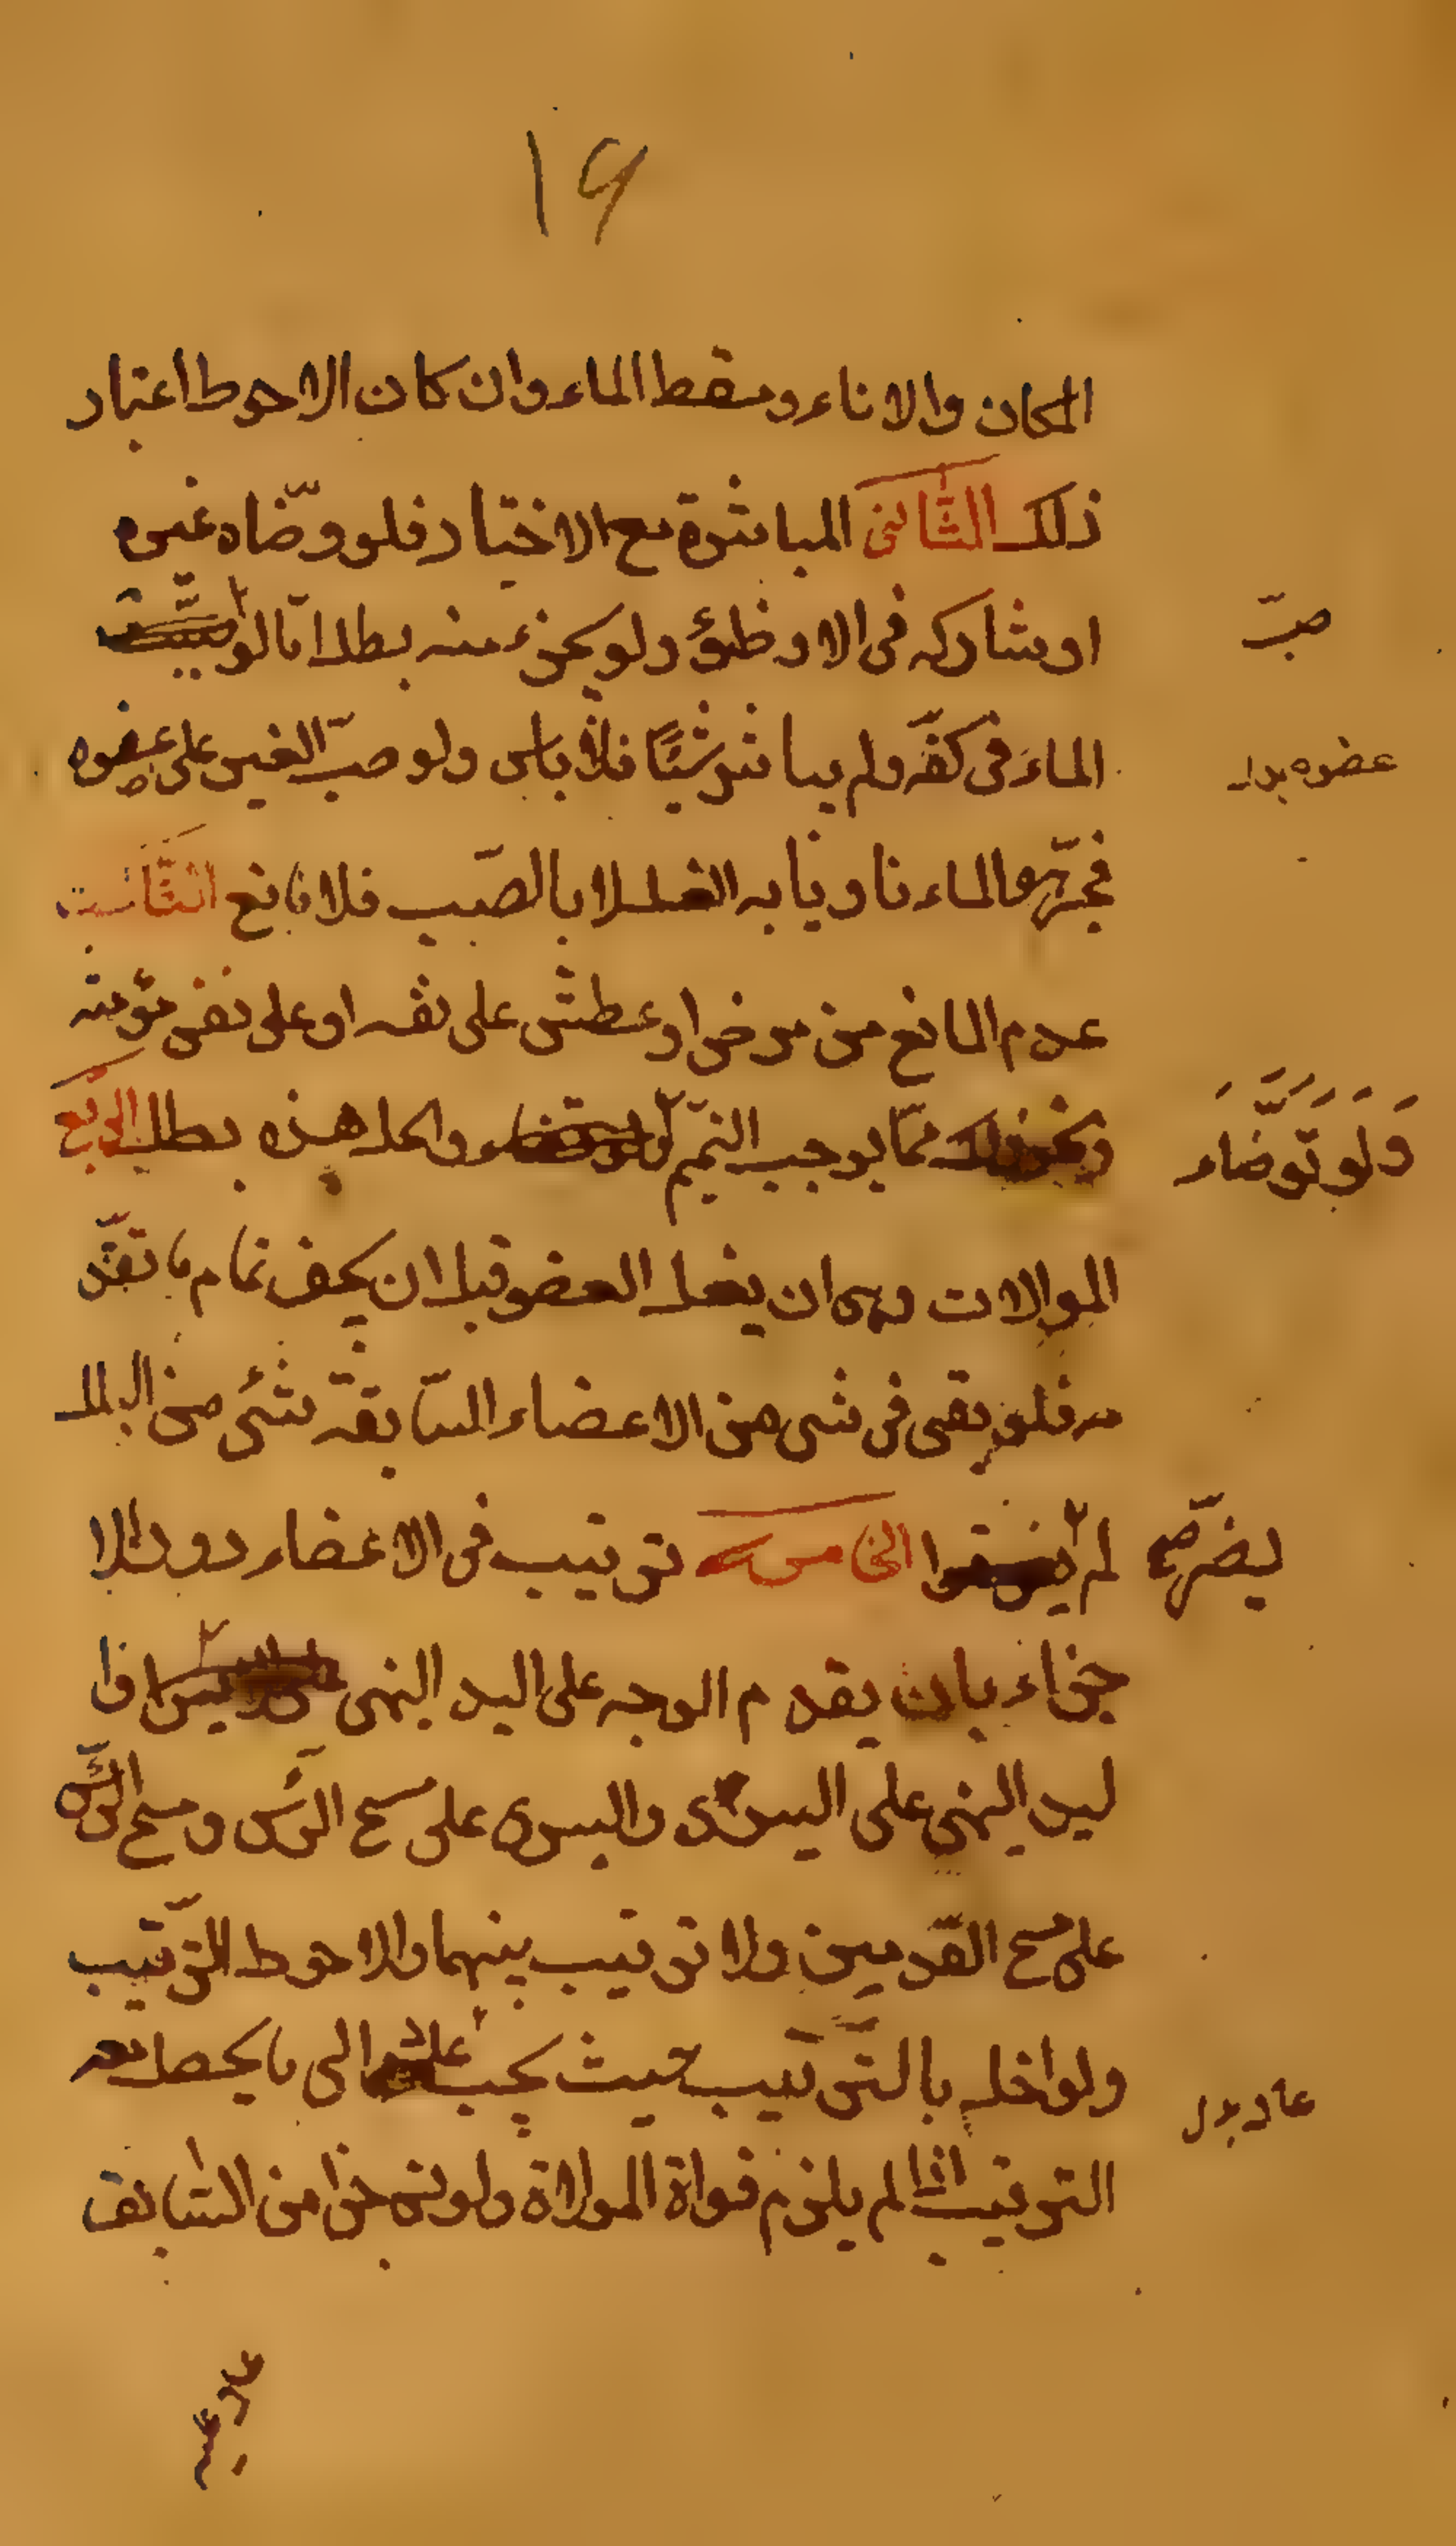 ١٩
المكان والاناء ومسقط الماء وان كان الاحوط اعتبار
ذلك الثانى المباشرة مع الاختيار فلو وضّاه غيره
او شاركه فى الاوظئ ولو بجزء منه بطل امّا لو
صبّ
الماء فى كفّه ولم يباشر شيئًا فلا باس ولو صبّ الغير على عضوه
عضوه بدل
فجرّ هو الماء ناويا به الغسل لا بالصبّ فلا مانع الثالث
عدم المانع من مرض او عطش على نفسه او على نفس مؤمنه
ونحو ذلك ممّا يوجب التيمّم والحل هذه بطل الرابع
ولو توضاء
الموالات وهى ان يغسل العضو قبل ان يجف تمام ما تقدّ
مه فلو بقى فى شى من الاعضاء السّابقة شئ من البلل
لم الخامسه ترتيب فى الاعضاء دون الا
يضرّ صح
جزاء بان يقدم الوجه على اليد اليمنى فا
ليد اليمنى على اليسرى واليسرى على مسح الرئس ومسح الرئس
على مسح القدمين ولا ترتيب بينهما والاحوط الترتيب
ولو اخل بالترتيب حيث يجب عاد الى ما يحصل معه
عاد بدل
الترتيب اذا لم يلزم فواة الموالاة ولو تم جزا من السّابق